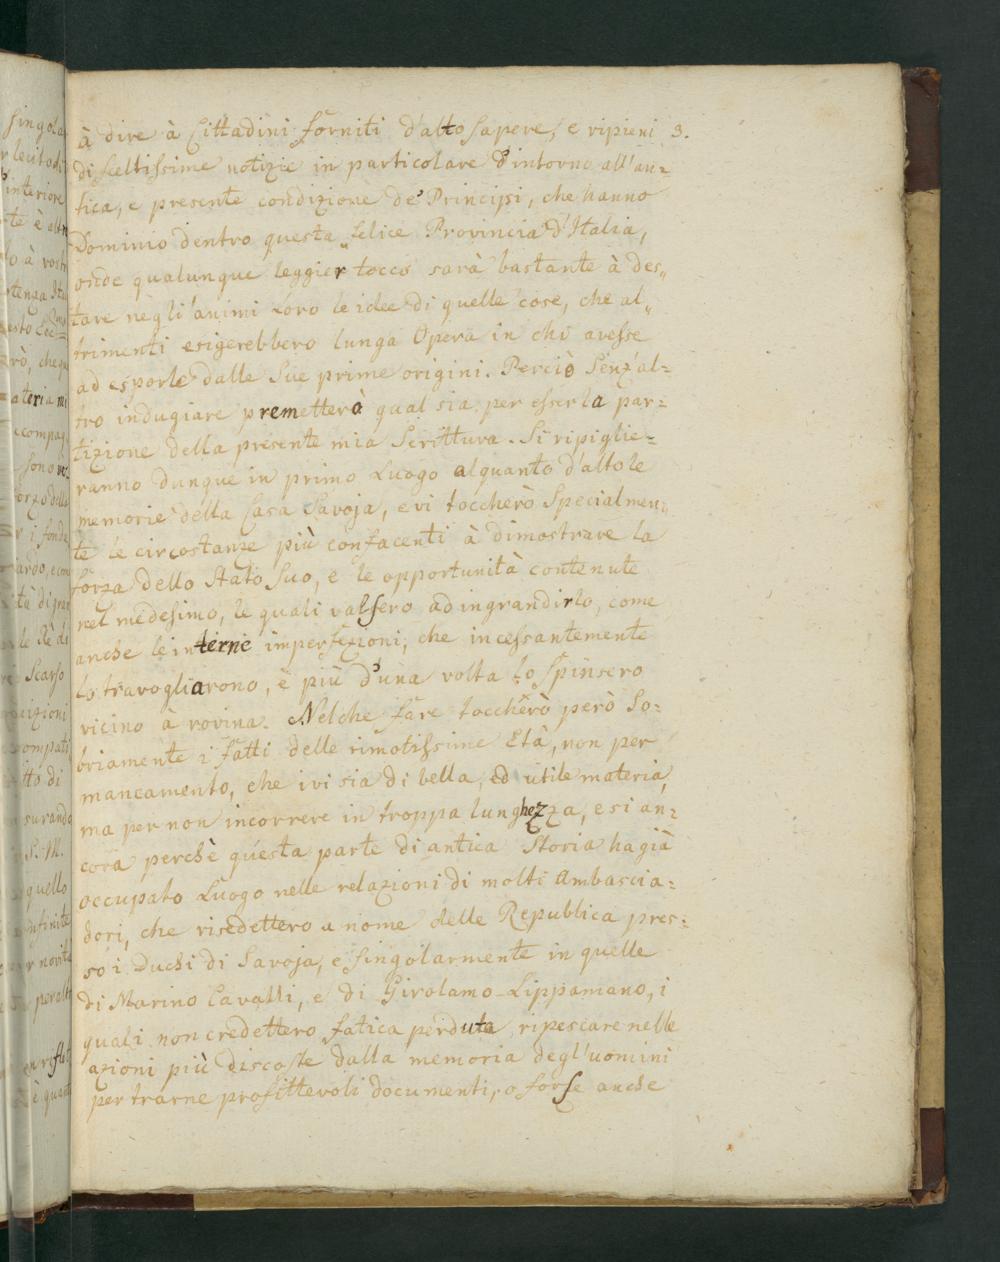 à dire à Cittadini forniti d'alto sapere, e ripieni 3.
di sceltissime notizie in particolare d'intorno all'an=
tica, e presente condizione de' Principi, che hanno
Dominio dentro questa felice Provincia d'Italia,
onde qualunque leggier tocco sarà bastante à des„
tare negli animi loro le idee di quelle cose, che al„
trimenti esigerebbero lunga Opera in chi avesse
ad esporle dalle Sue prime origini. Perciò Senz'al=
tro indugiare premetterò qual sia per esser la par=
tizione della presente mia Scrittura. Si ripiglie=
ranno dunque in primo Luogo alquanto d'alto le
memorie della Casa Savoja, e vi toccherò Specialmen„
te le circostanze più confacenti à dimostrare la
forza dello Stato Suo, e le opportunità contenute
nel medesimo, le quali valsero ad ingrandirlo, come
anche le interne imperfezioni, che incessantemente
lo travogliarono, e più d'una volta lo Spinsero
vicino à rovina. Nel che fare toccherò però So=
briamente i fatti delle rimotissime Età, non per
mancamento, che ivi sia di bella, ed utile materia,
ma per non incorrere in troppa lunghezza, e si an=
cora perchè questa parte di antica Storia ha già
occupato Luogo nelle relazioni di molti Ambascia=
dori, che risedettero a nome delle Republica pres=
so i Duchi di Savoja, e singolarmente in quelle
di Marino Cavalli, e di Girolamo Lippamano, i
quali non credettero fatica perduta ripescare nelle
azioni più discoste dalla memoria degl'uomini
per trarne profittevoli documenti, o forse anche